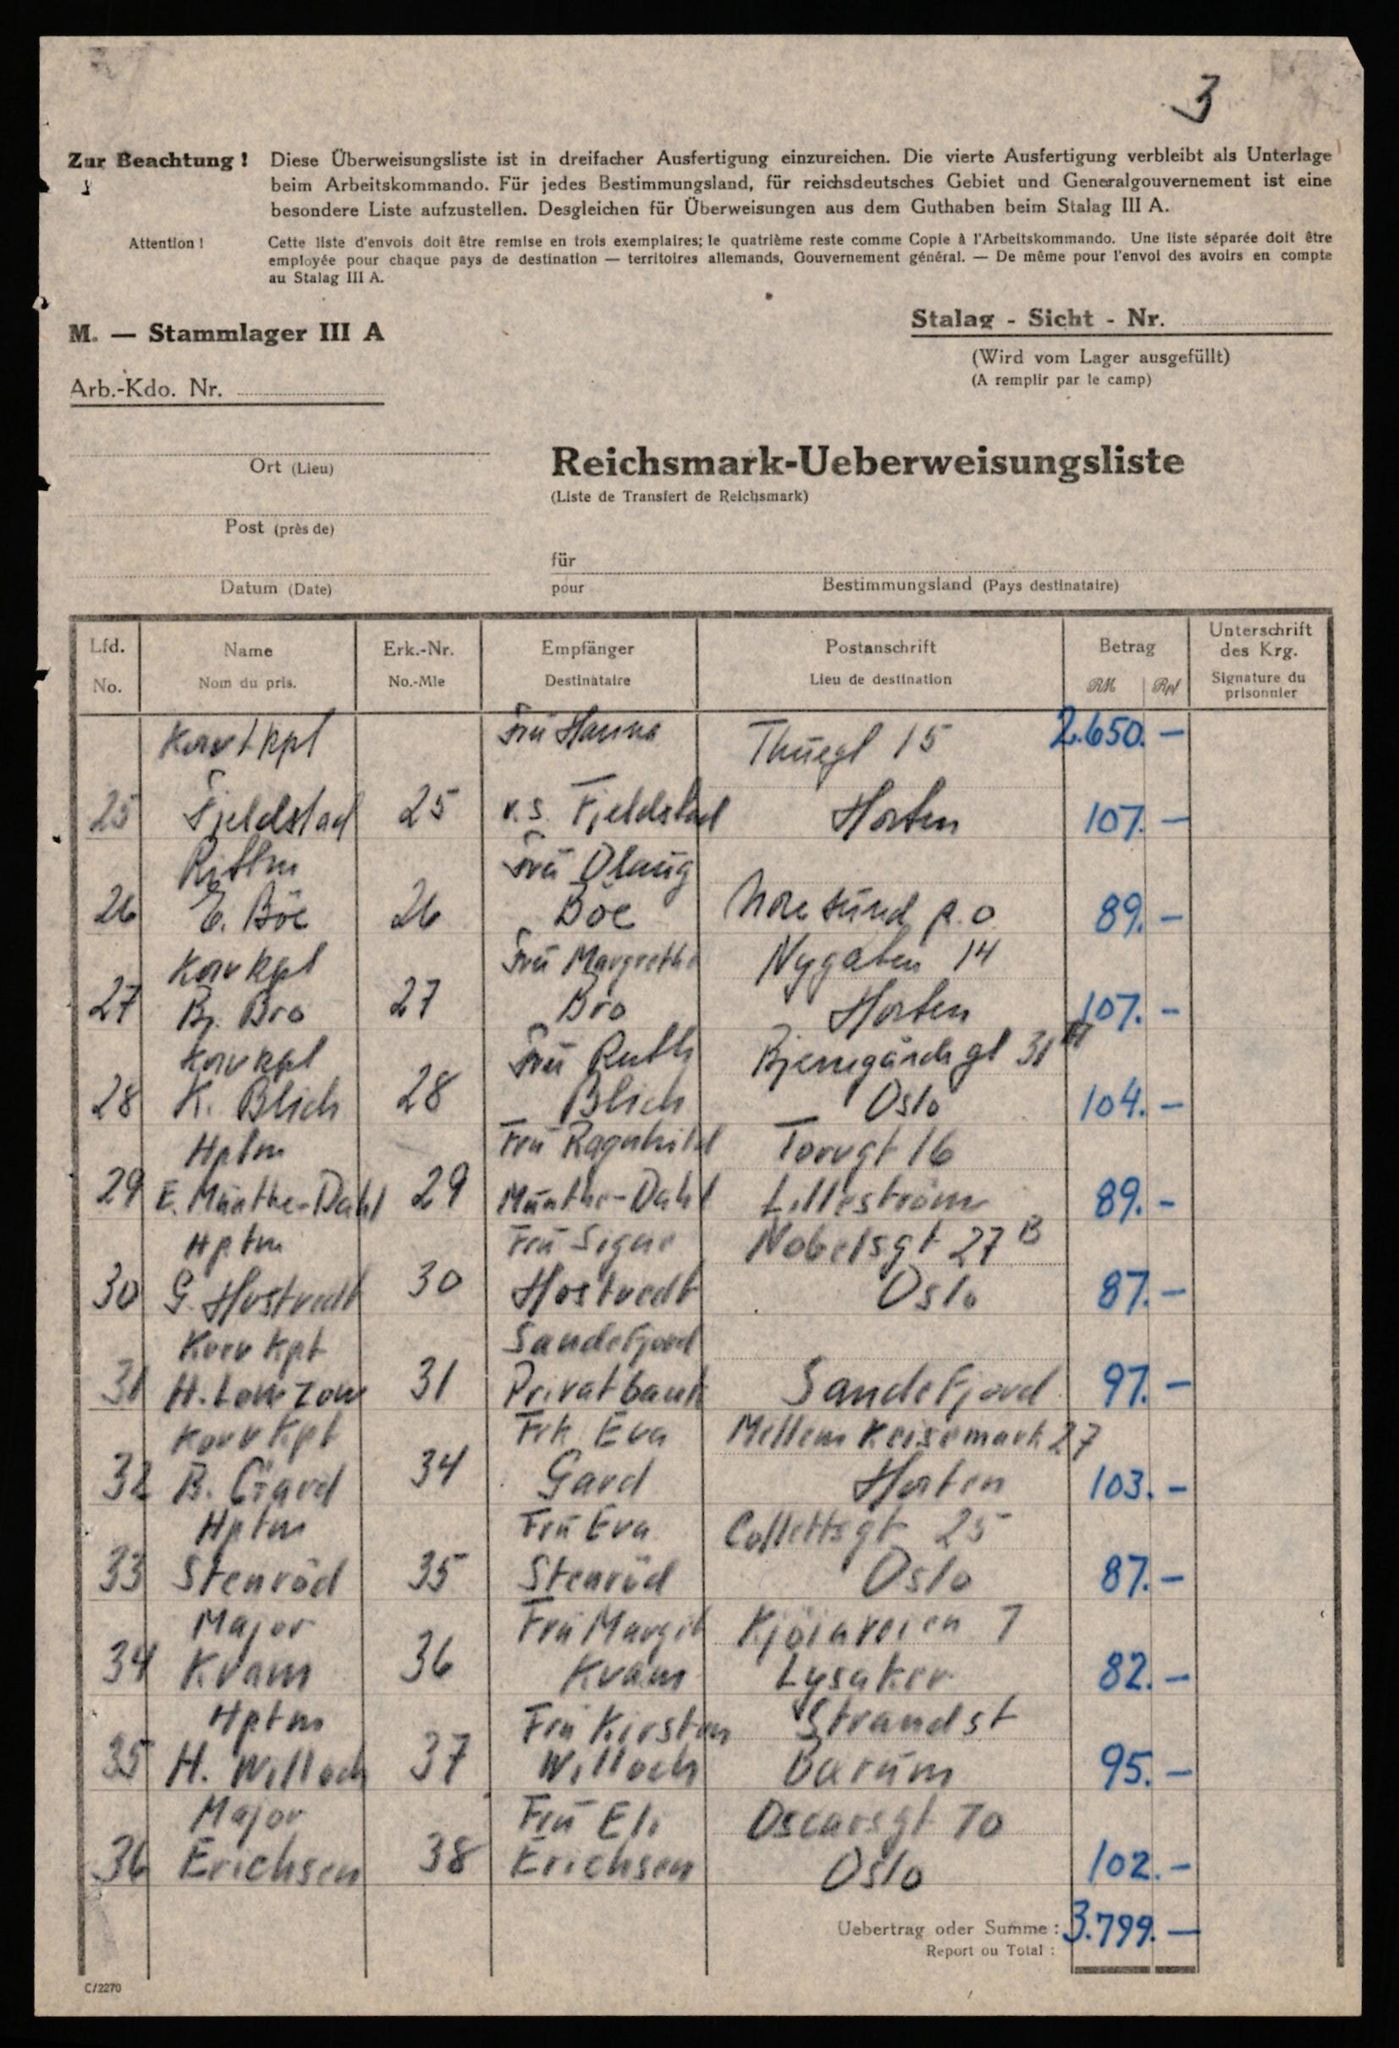 3
Zur Beachtung ! Diese Überweisungsliste ist in dreifacher Ausfertigung einzureichen. Die vierte Ausfertigung verbleibt als Unterlage
beim Arbeitskommando. Für jedes Bestimmungsland, für reichsdeutsches Gebiet und Generalgouvernement ist eine
besondere Liste aufzustellen. Desgleichen für Überweisungen aus dem Guthaben beim Stalag III A.
Attention ! Cette liste d'envois doit être remise en trois exemplaires; le quatrième reste comme Copie à l'Arbeitskommando. Une liste séparée doit être
employée pour chaque pays de destination — territoires allemands, Gouvernement général. — De même pour l'envoi des avoirs en compte
au Stalag III A.
M. — Stammlager III A
Stalag - Sicht - Nr.
(Wird vom Lager ausgefüllt)
(A remplir par le camp)
Arb.-Kdo. Nr.
Ort (Lieu)
Post (près de)
Datum (Date)
Reichsmark-Ueberweisungsliste
(Liste de Transfert de Reichsmark)
für
pour Bestimmungsland (Pays destinataire)
Lfd. Name Erk.-Nr. Empfänger Postanschrift Betrag Unterschrift des Krg.
No. Nom du pris. No.-Mle Destinataire Lieu de destination RM Rpf Signature du prisonnier
Korvtkpt Frü Hanna Thuegt 15 2.650.—
25 Fjeldstad 25 v.s. Fjeldstad Horten 107.—
Rittm Frü Olaug
26 E. Böe 26 Böe Noresund p.o 89.—
Korvkpt Frü Margrethe Nygaten 14
27 Bj. Bro 27 Bro Horten 107.—
Korvkpt Frü Ruth Bjerregårdsgt 31 III
28 K. Blich 28 Blich Oslo 104.—
Hptm Frü Ragnhild Torvgt 16
29 E. Münthe-Dahl 29 Münthe-Dahl Lilleström 89.—
Hptm Frü Signe Nobelsgt 27 B
30 G. Hostvedt 30 Hostvedt Oslo 87.—
Korv Kpt Sandefjord
31 H. Lowzow 31 Privatbank Sandefjord 97.—
Korv Kpt Frk. Eva Mellem Keisemark 27
32 B. Gard 34 Gard Horten 103.—
Hptm Frü Eva Collettsgt 25
33 Stenröd 35 Stenröd Oslo 87.—
Major Frü Margit 7
34 Kvam 36 Kvam Lysaker 82.—
Hptm Frü Kirsten Strandst
35 H. Willoch 37 Willoch Barüm 95.—
Major Frü Eli Oscarsgt 70
36 Erichsen 38 Erichsen Oslo 102.—
Uebertrag oder Summe : 3.799.—
Report ou Total :
C/2270